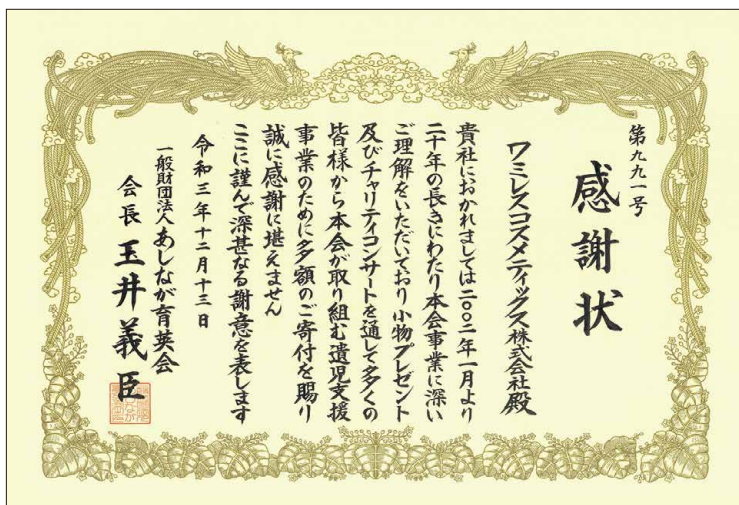 第九九一号
感謝状
ワミレスコスメティックス株式会社殿
貴社におかれましては二〇〇二年一月より
二十年の長きにわたり本会事業に深い
ご理解をいただいており小物プレゼント
及びチャリティコンサートを通して多くの
皆様から本会が取り組む遺児支援
事業のために多額のご寄付を賜り
誠に感謝に堪えません
ここに謹んで深甚なる謝意を表します
令和三年十二月十三日
一般財団法人あしなが育英会
会長 玉井義臣